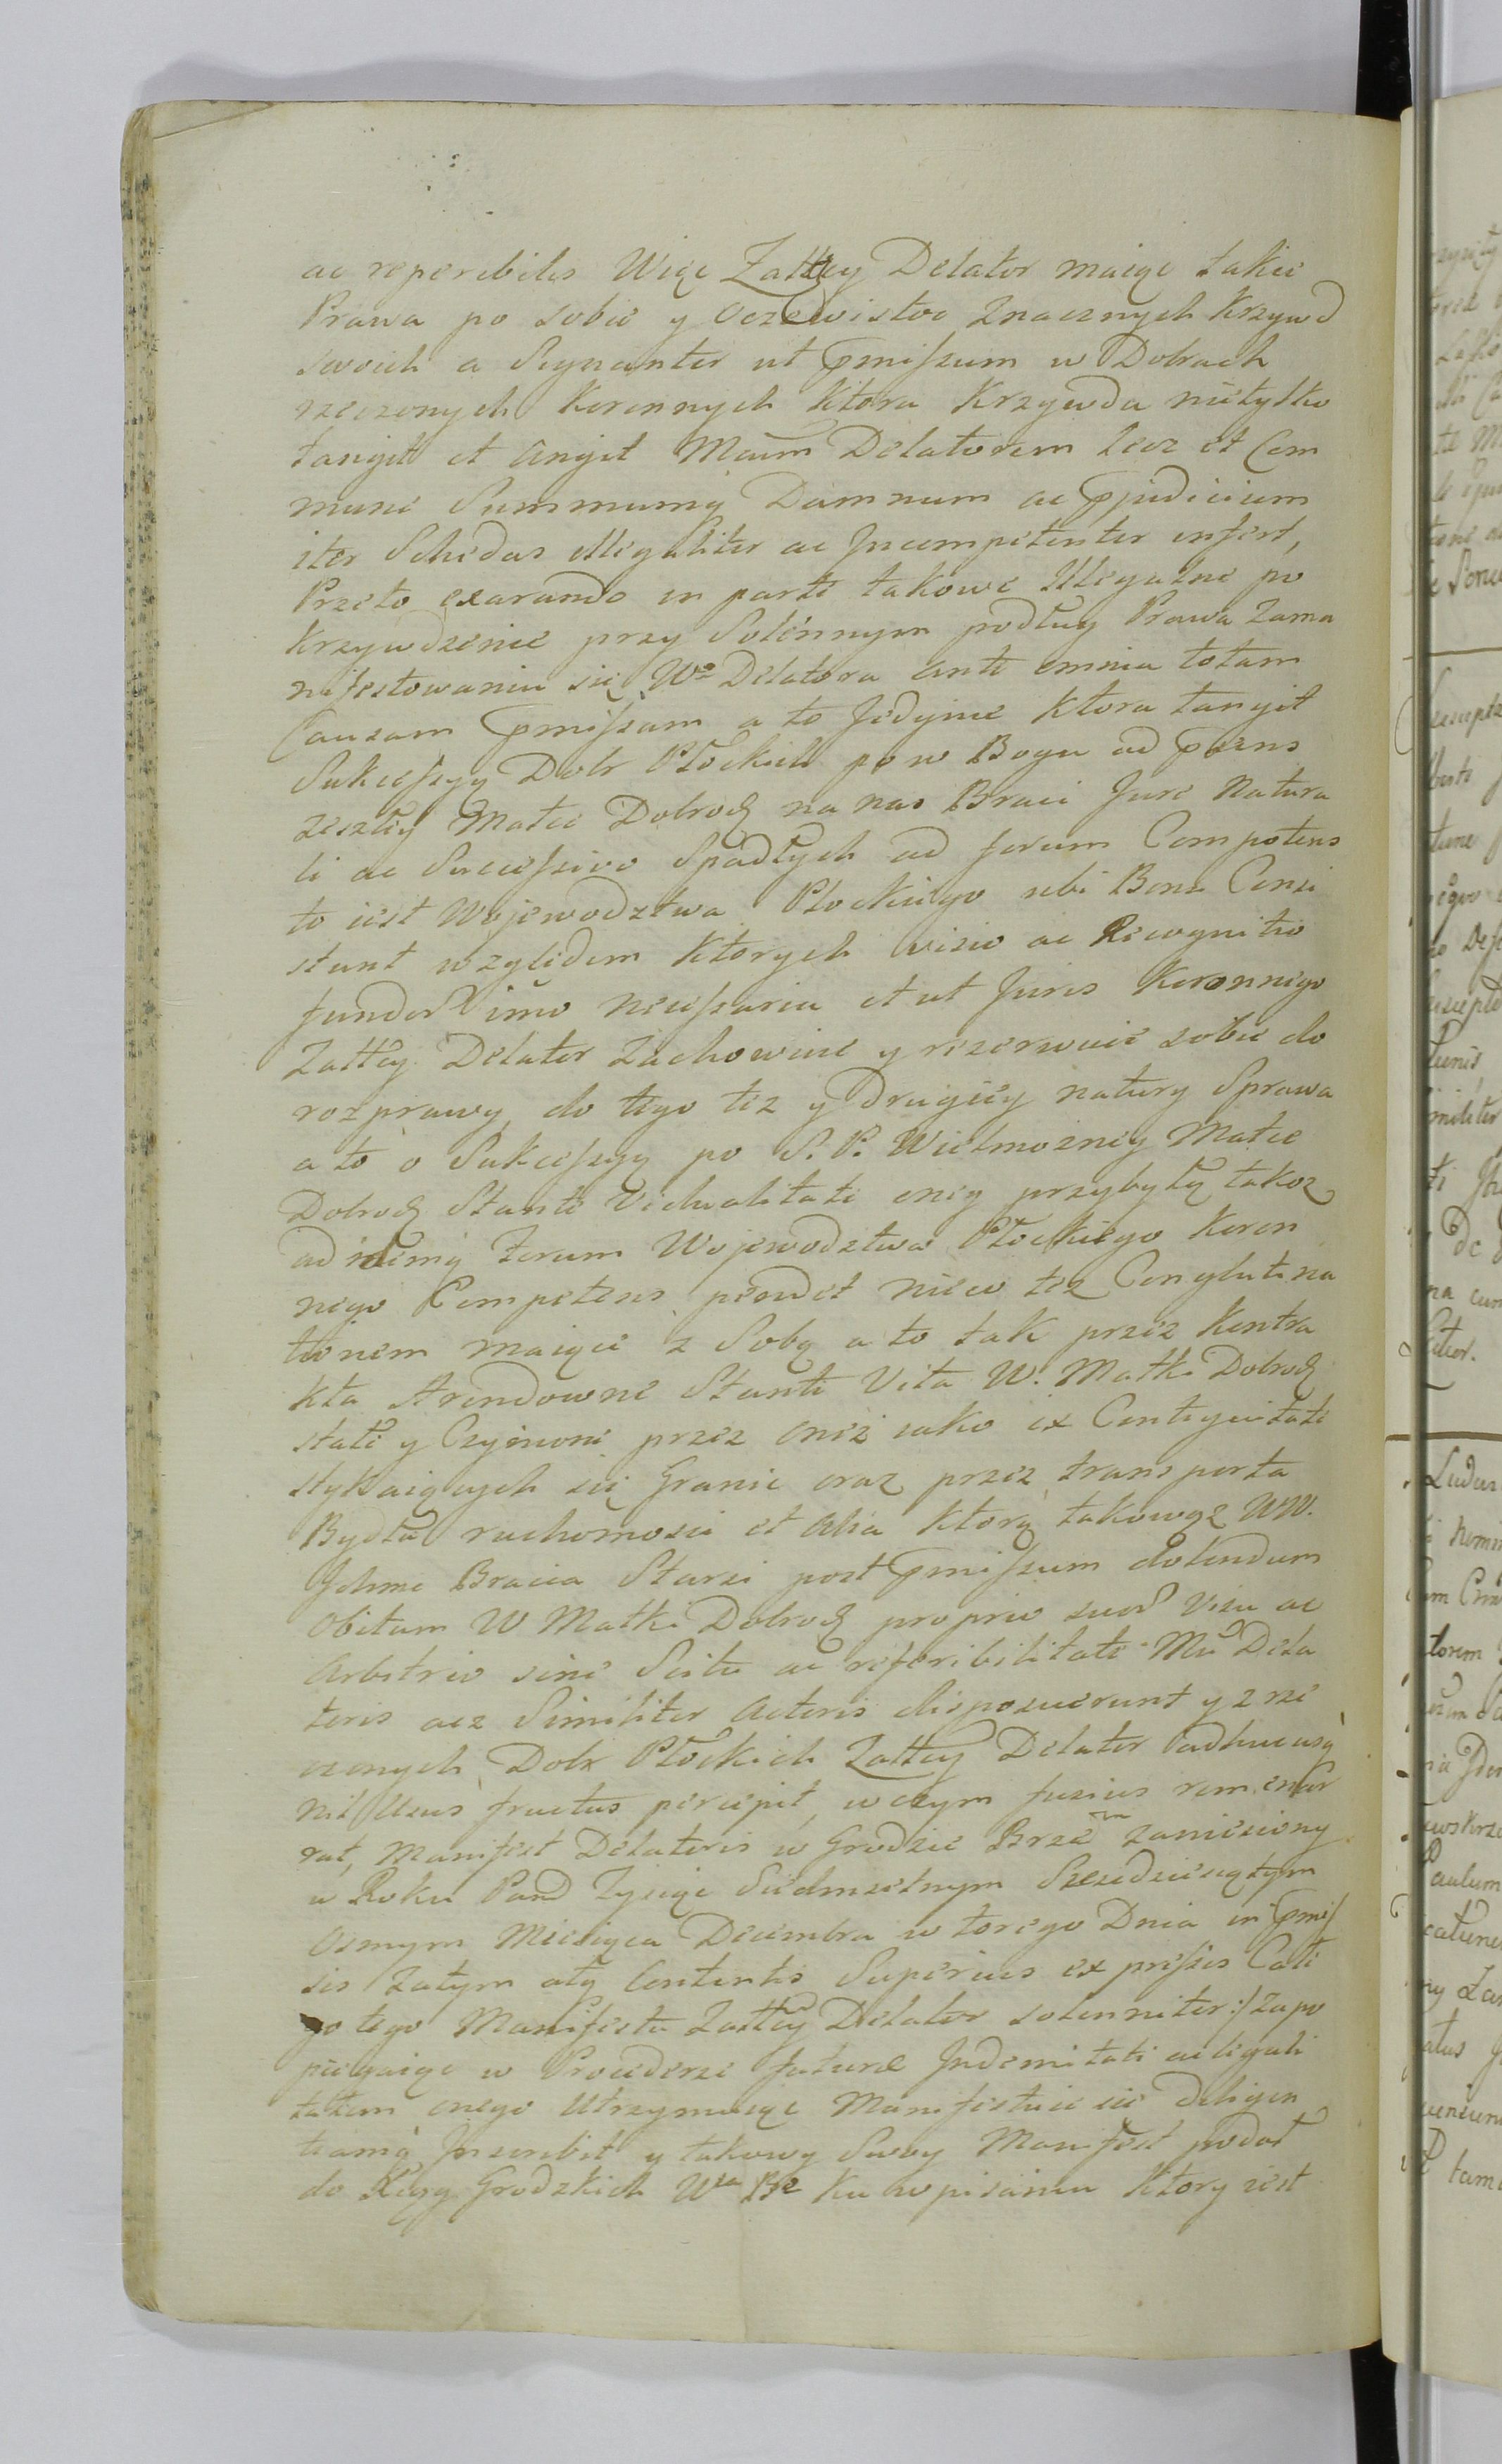 ac reperibilis Więc Załłcy Delator maiąc takie
Prawa po sobie y oczewistoc Znacznych Krzywd
swoich a Signanter ut Pmissum w Dobrach
rzeczonych Koronnych Ktora Krzywda nietylko
tangit et angit Mcum Delatorem lecz et Com
mune Summumq Damnum ac Pjudicium
iter Schedas illegaliter ac Incompetenter infert,
Przeto exarando in parte takowe Illegalne po
krzywdzenie przy Solennym podług Prawa Zama
nifestowaniu się Wo Delatora ante omnia totam
Causam Pmissam a to Jedynie Ktora tangit
Sukcessyę Dobr Płockich po w Bogu ad Psens
zeszłey Matce Dobrodz na nas Braci Jure Natura
li ac Successivo Spadłych ad forum Competens
to iest Wojewodztwa Płockiego ubi Bona Consi
stunt względem Ktorych visio ac Recognitio
fundor imo necessaria et ut Juris Koronnego
Załłcy Delator Zachowuie y rezerwuie sobie do
rozprawy, do tego tez y Drugiey natury Sprawa
a to o Sukcessyą po S. P. Wielmozney Matce
Dobrodz Stante Vidualitate oney przybyłą takoz
ad idemq forum Wojewodztwa Płockiego Koron
nego Competens pendet nieco tez Conglutina
tionem maiące z Sobą a to tak przez Kontra
kta Arendowne Stante Vita W. Matki Dobrodz
state y Czynione przez oneż iako ex Contiguitate
stykaiących się Granic oraz przez transporta
Bydła ruchomosci et alia Ktorą takowąz WW.
Ichmc Bracia Starsi post Pmissum dolendum
Obitum W Matki Dobrodz proprio suor visu ac
Arbitrio sine Scitu ac referibilitate Mci Dela
toris acz Similiter actoris disposuerunt y z rze
czonych Dobr Płockich Załłcy Delator adhucusq
nil Usus fructus percepit, w czym fusius rem enar
rat, Manifest Delatoris w Grodzie Brze zaniesiony
w Roku Pand Tysiąc Siedmsetnym Szescdziesiątym
Osmym Miesiąca Decembra wtorego Dnia in Pmis
sis Zatym atq Contentis Superius expressis Całe
go tego Manifestu Załłcy Delator solenniter :/ Zapo
biegaiąc w Procederze futuræ Indemnitati ac legali
tatem onego Utrzymuiąc Manifestuie się diligen
tiamq Inscribit y takowy Swoy Manifest podał
do Xiąg Grodzkich Wa Brze Ku wpisaniu Ktory iest